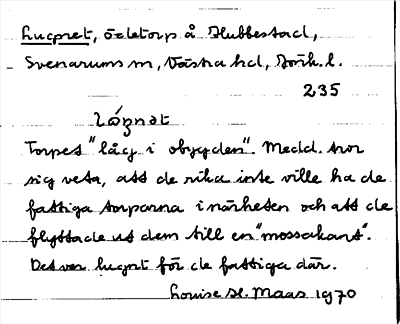 Lugnet, ödetorp å Hubbestad,
Svenarums sn, Västra hd, Jönk. l.
235
Torpet "låg i obygden". Medd. tror
sig veta, att de rika inte ville ha de
fattiga torparna i närheten och att de
flyttade ut dem till en "mossakant".
Det var lugnt för de fattiga där.
Louise H. Maas 1970